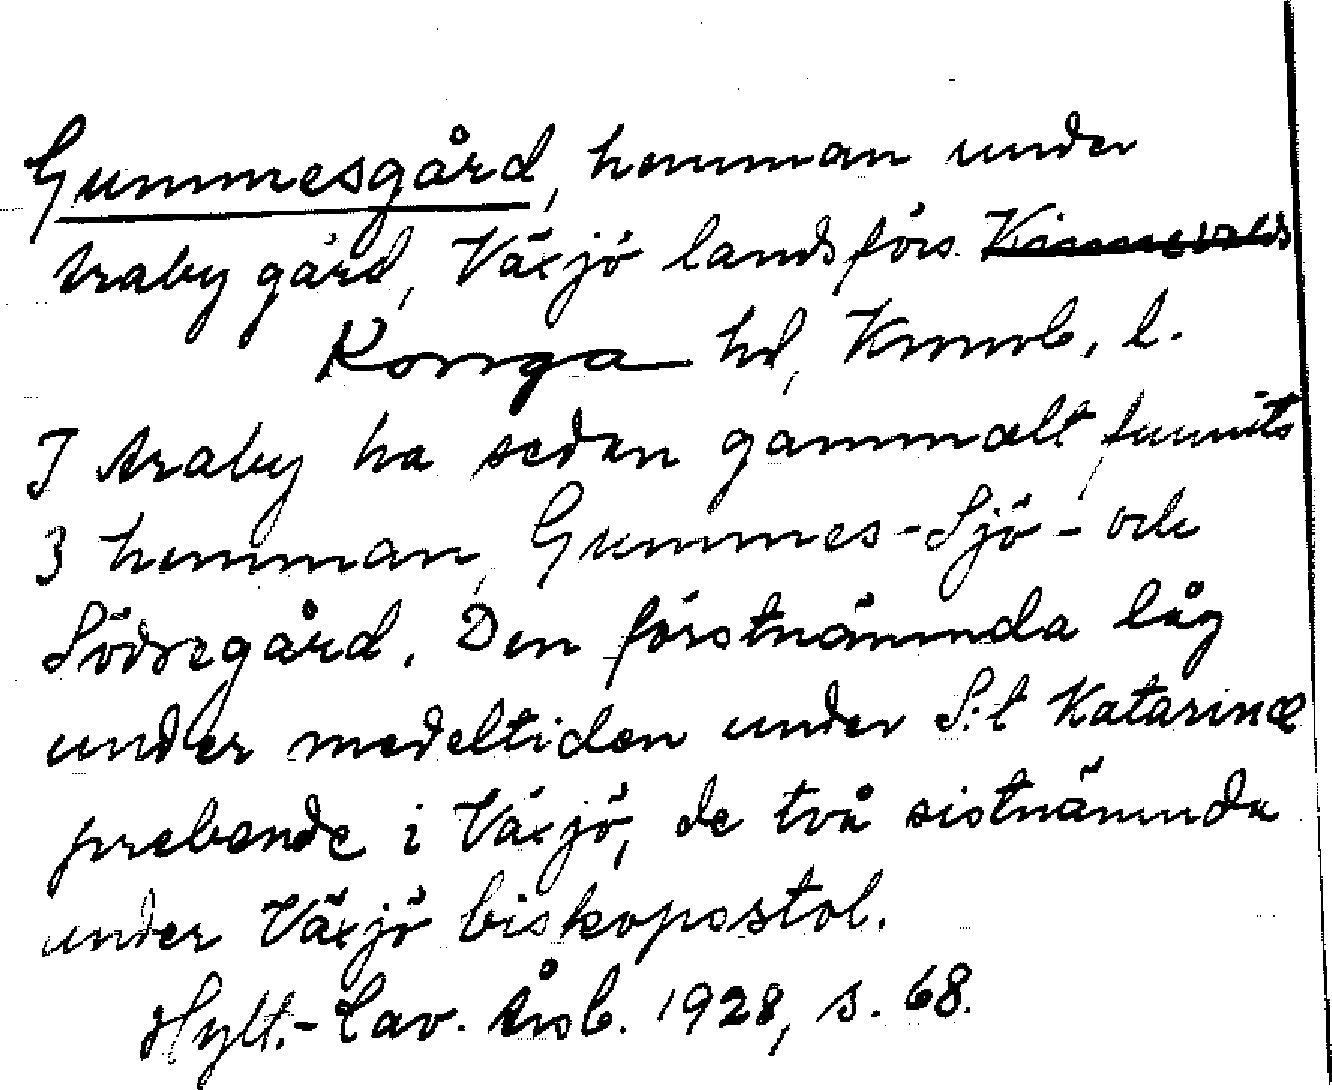 Gummesgård, hemman under
Araby gård, Växjö landsförs. Kinnevalds
Konga hd, Kronob. l.
I Araby ha sedan gammalt funnits
3 hemman, Gummes-Sjö- och
Södregård. Den förstnämnda låg
under medeltiden under S:t Katarinæ
prebende i Växjö, de två sistnämnda
under Växjö biskopsstol.
Hylt.-Cav. Årsb. 1928, s. 68.